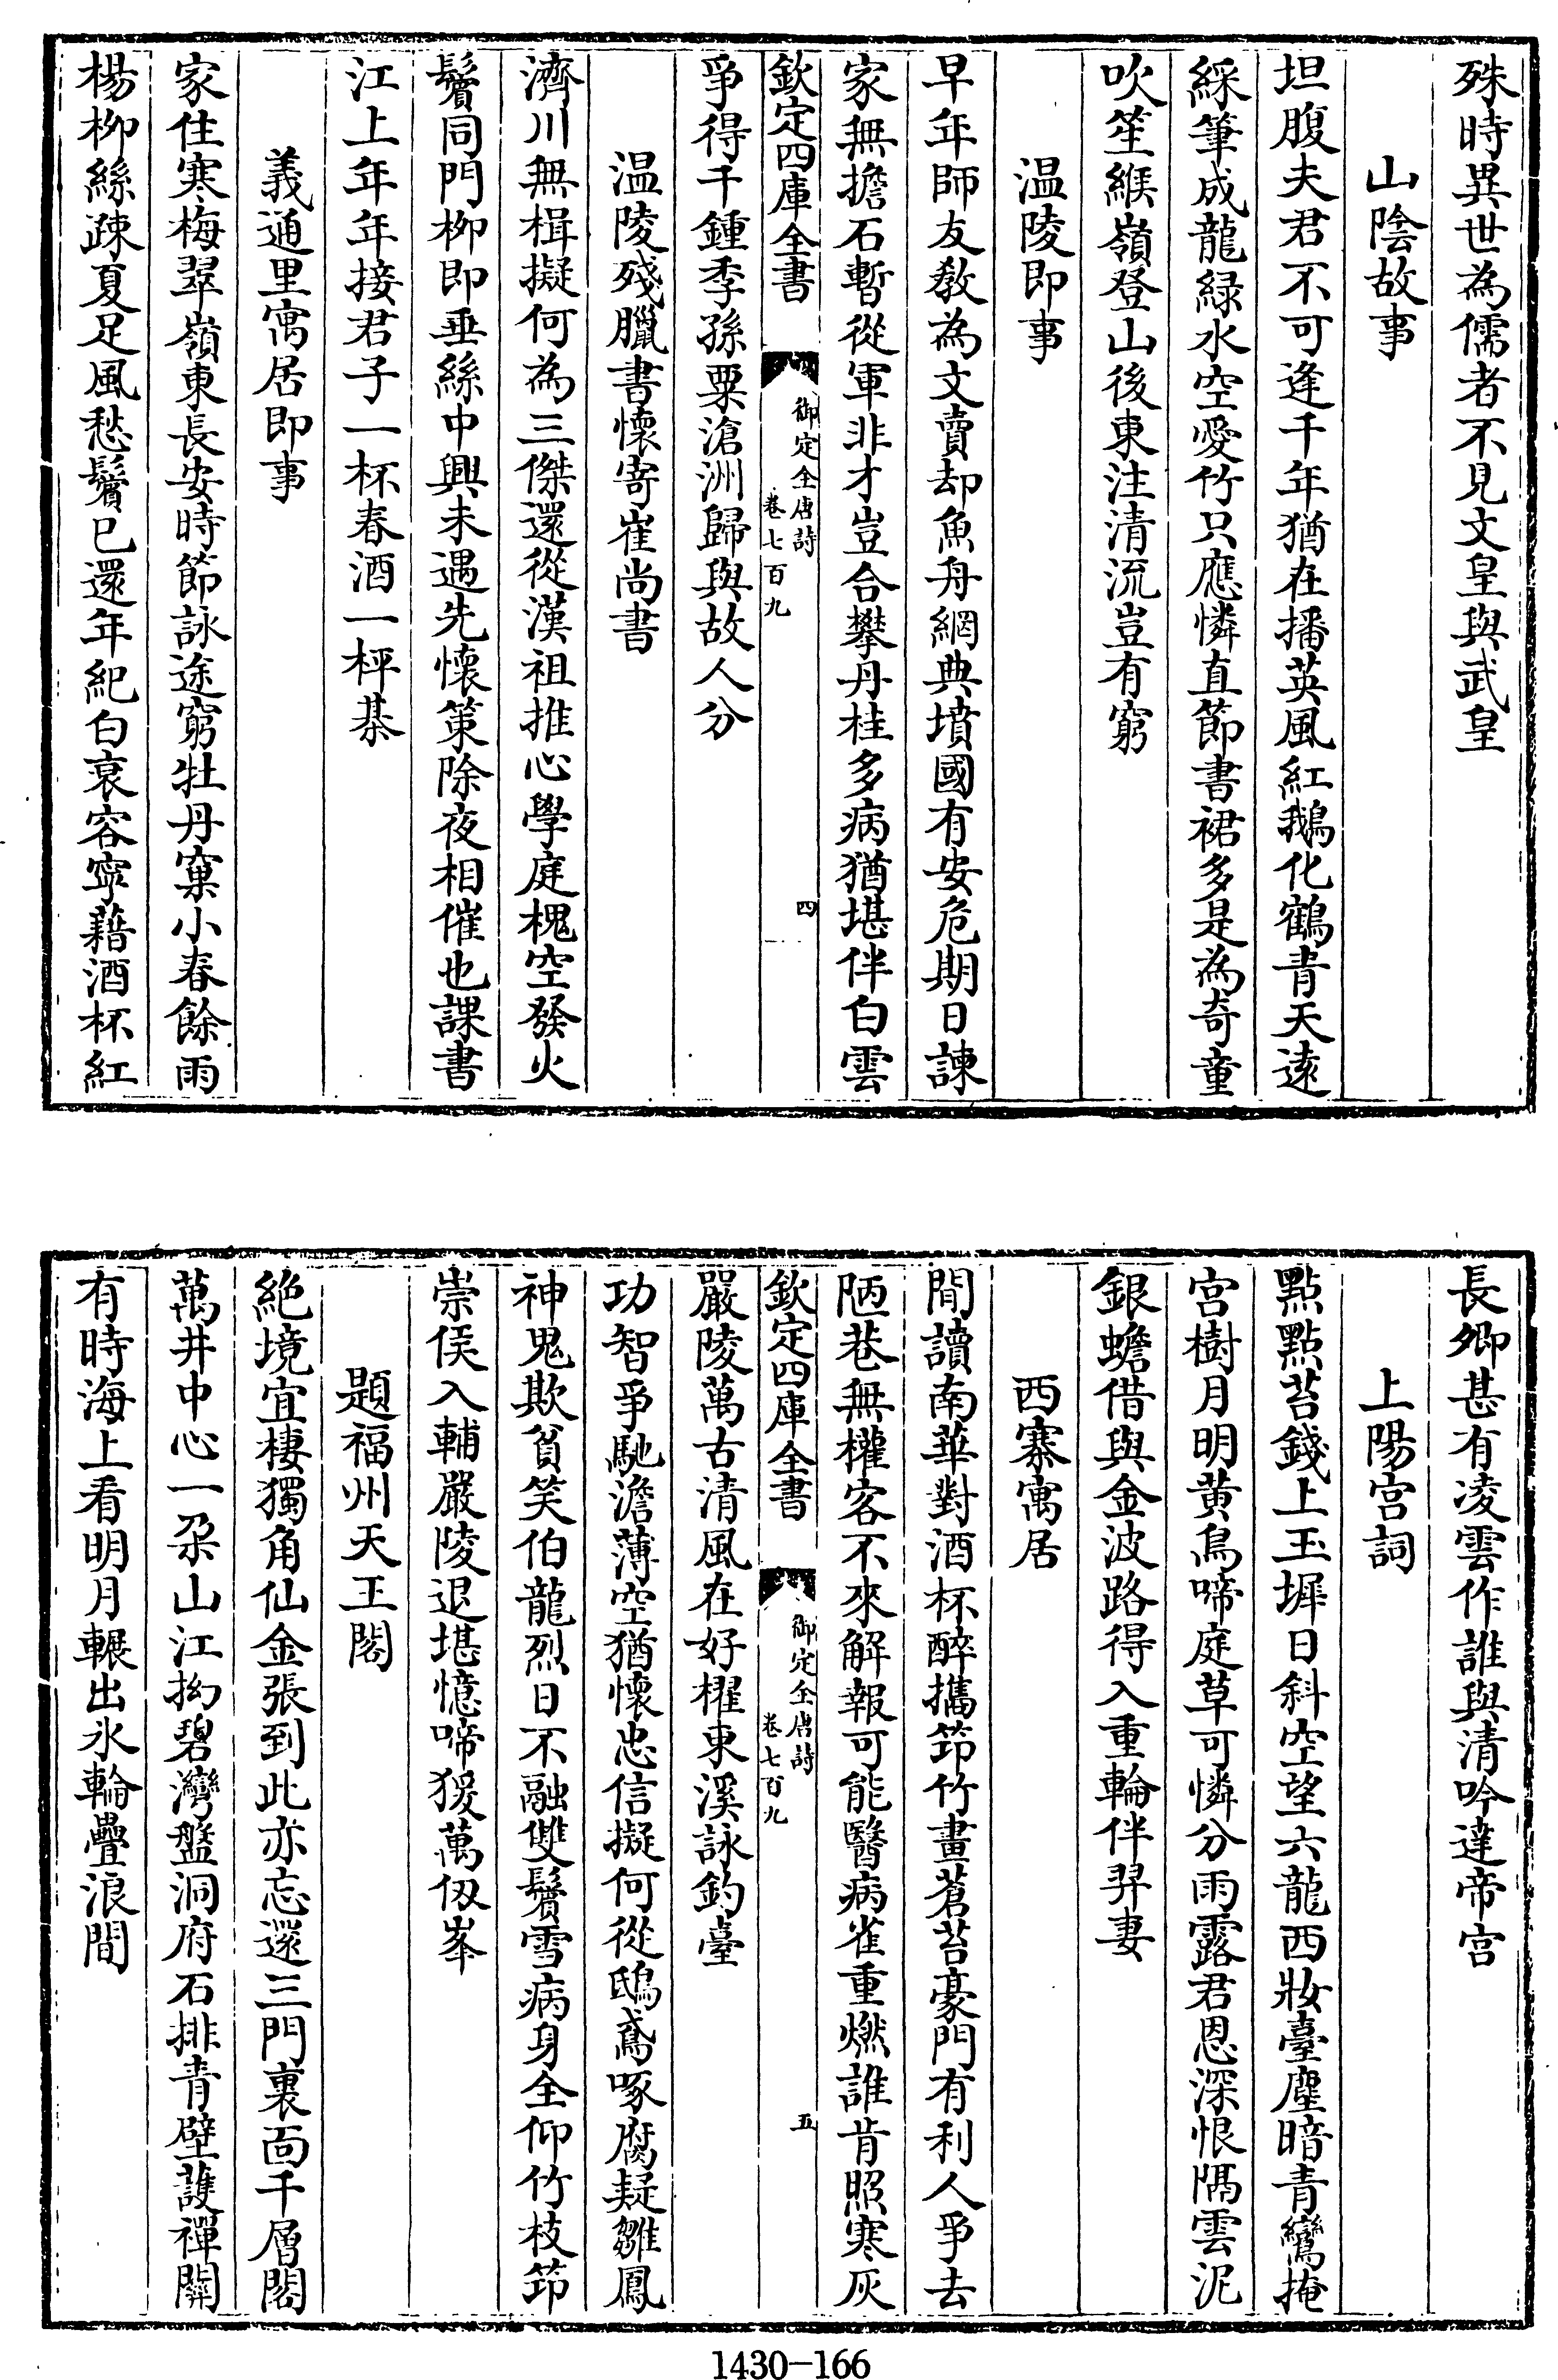 殊時異世為儒者不見文皇與武皇
山陰故事
坦腹夫君不可逢千年猶在播英風紅鵝化鶴青天遠
綵筆成龍緑水空愛竹只應憐直節書裙多是為奇童
吹笙緱嶺登山後東注清流豈有窮
温陵即事
早年師友敎為文賣却魚舟網典墳國有安危期日諫
家無擔石暫從軍非才豈合攀丹桂多病猶堪伴白雲
欽定四庫全書
御定全唐詩
卷七百九
四
爭得千鍾季孫粟滄洲歸與故人分
温陵殘臘書懷寄崔尚書
濟川無楫擬何為三傑還從漢祖推心學庭槐空發火
鬢同門栁即垂絲中興未遇先懷策除夜相催也課書
江上年年接君子一杯春酒一枰棊
義通里寓居即事
家住寒梅翠嶺東長安時節詠途窮牡丹窠小春餘雨
楊栁絲疎夏足風愁鬢已還年紀白衰容寧藉酒杯紅
長卿甚有凌雲作誰與清吟達帝宫
上陽宫詞
點點苔錢上玉墀日斜空望六龍西妝臺塵暗青鸞掩
宫樹月明黄鳥啼庭草可憐分雨露君恩深恨隔雲泥
銀蟾借與金波路得入重輪伴羿妻
西寨寓居
閒讀南華對酒杯醉攜笻竹畫蒼苔豪門有利人爭去
陋巷無權客不來解報可能醫病雀重燃誰肯照寒灰
欽定四庫全書
御定全唐詩
卷七百九
五
嚴陵萬古清風在好櫂東溪詠釣臺
功智爭馳澹薄空猶懷忠信擬何從鴟鳶啄腐疑雛鳳
神鬼欺貧笑伯龍烈日不融雙鬢雪病身全仰竹枝笻
崇侯入輔嚴陵退堪憶啼猨萬仭峯
題福州天王閣
絶境宜棲獨角仙金張到此亦忘還三門裏面千層閣
萬井中心一朶山江拗碧灣盤洞府石排青壁護禪關
有時海上看明月輾出氷輪疊浪間
1430-166